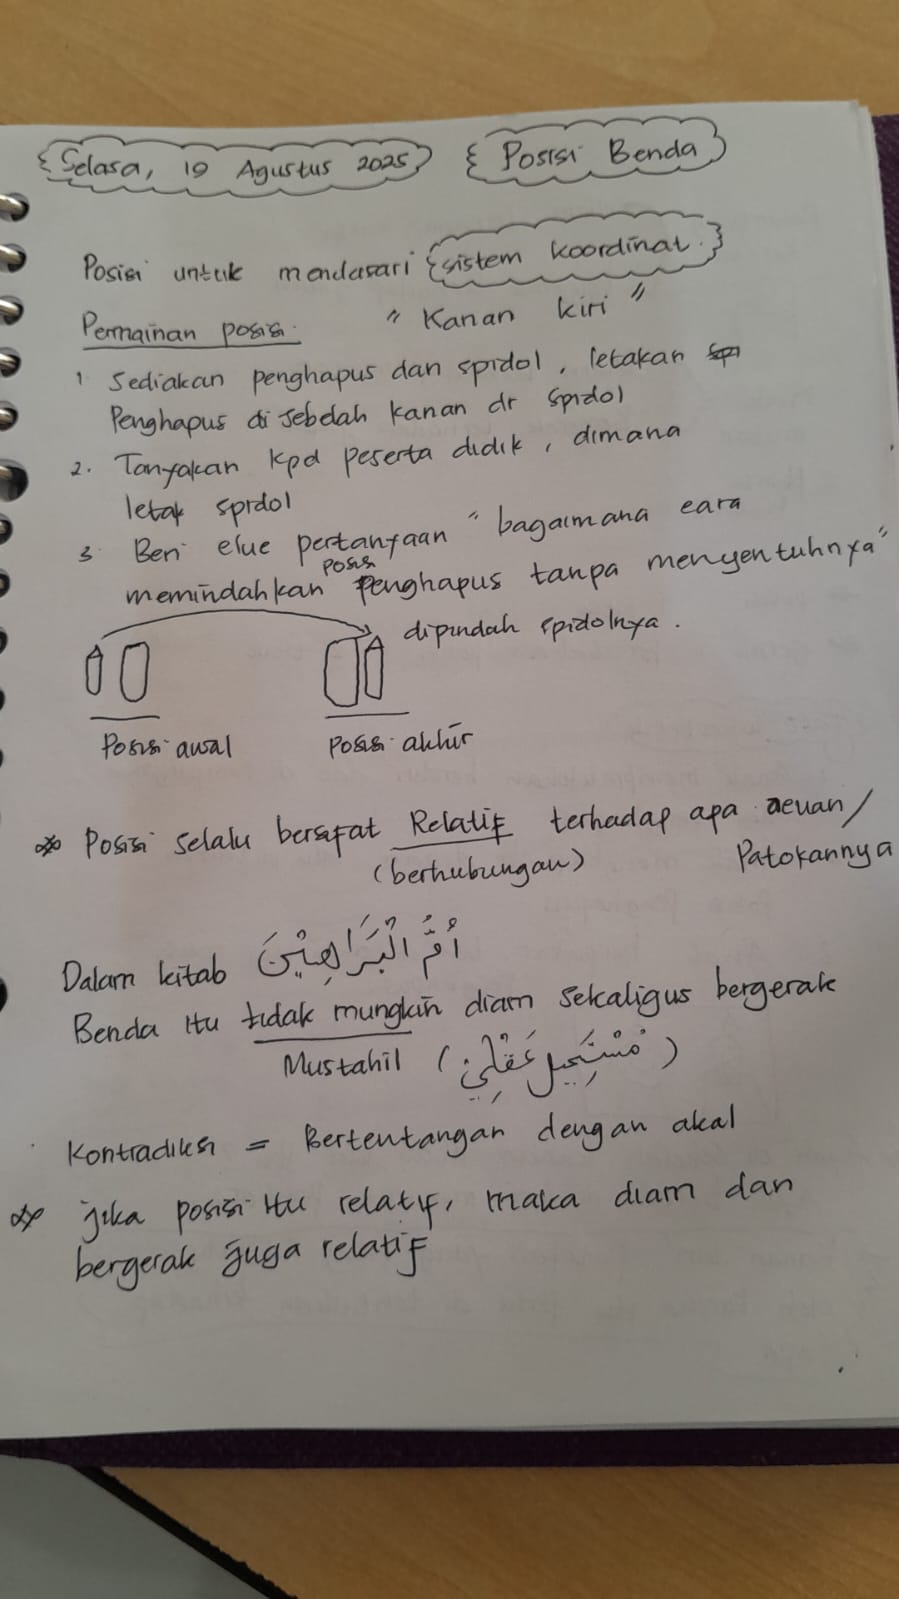 Selasa, 19 Agustus 2025
Posisi Benda
Posisi untuk mendasari sistem koordinat.
Permainan posisi. "Kanan kiri"
1. Sediakan penghapus dan spidol, letakan
Penghapus di sebelah kanan dr spidol
2. Tanyakan kpd peserta didik, dimana
letak spidol
3. Beri clue pertanyaan "bagaimana cara
memindahkan posisi penghapus tanpa menyentuhnya"
dipindah spidolnya.
Posisi awal
posisi akhir
Posisi selalu bersifat Relatif terhadap apa acuan/
(berhubungan) Patokannya
Dalam kitab أُمُّ الْبَرَاهِيْنَ
Benda itu tidak mungkin diam sekaligus bergerak
Mustahil (مُسْتَحِيل عَقْلِيّ)
Kontradiksi = Bertentangan dengan akal
jika posisi itu relatif, maka diam dan
bergerak juga relatif